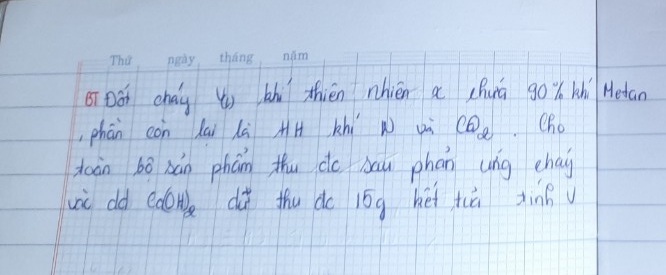 Thứ ngày tháng năm
BT Đốt cháy V(l) khí thiên nhiên x chứa 90% khí Metan
, phần còn lại là HH khí N và CO2. Cho
toàn bộ sản phẩm thu dc sau phản ứng cháy
vào dd Ca(OH)2 dư thu dc 15g kết tủa tính V